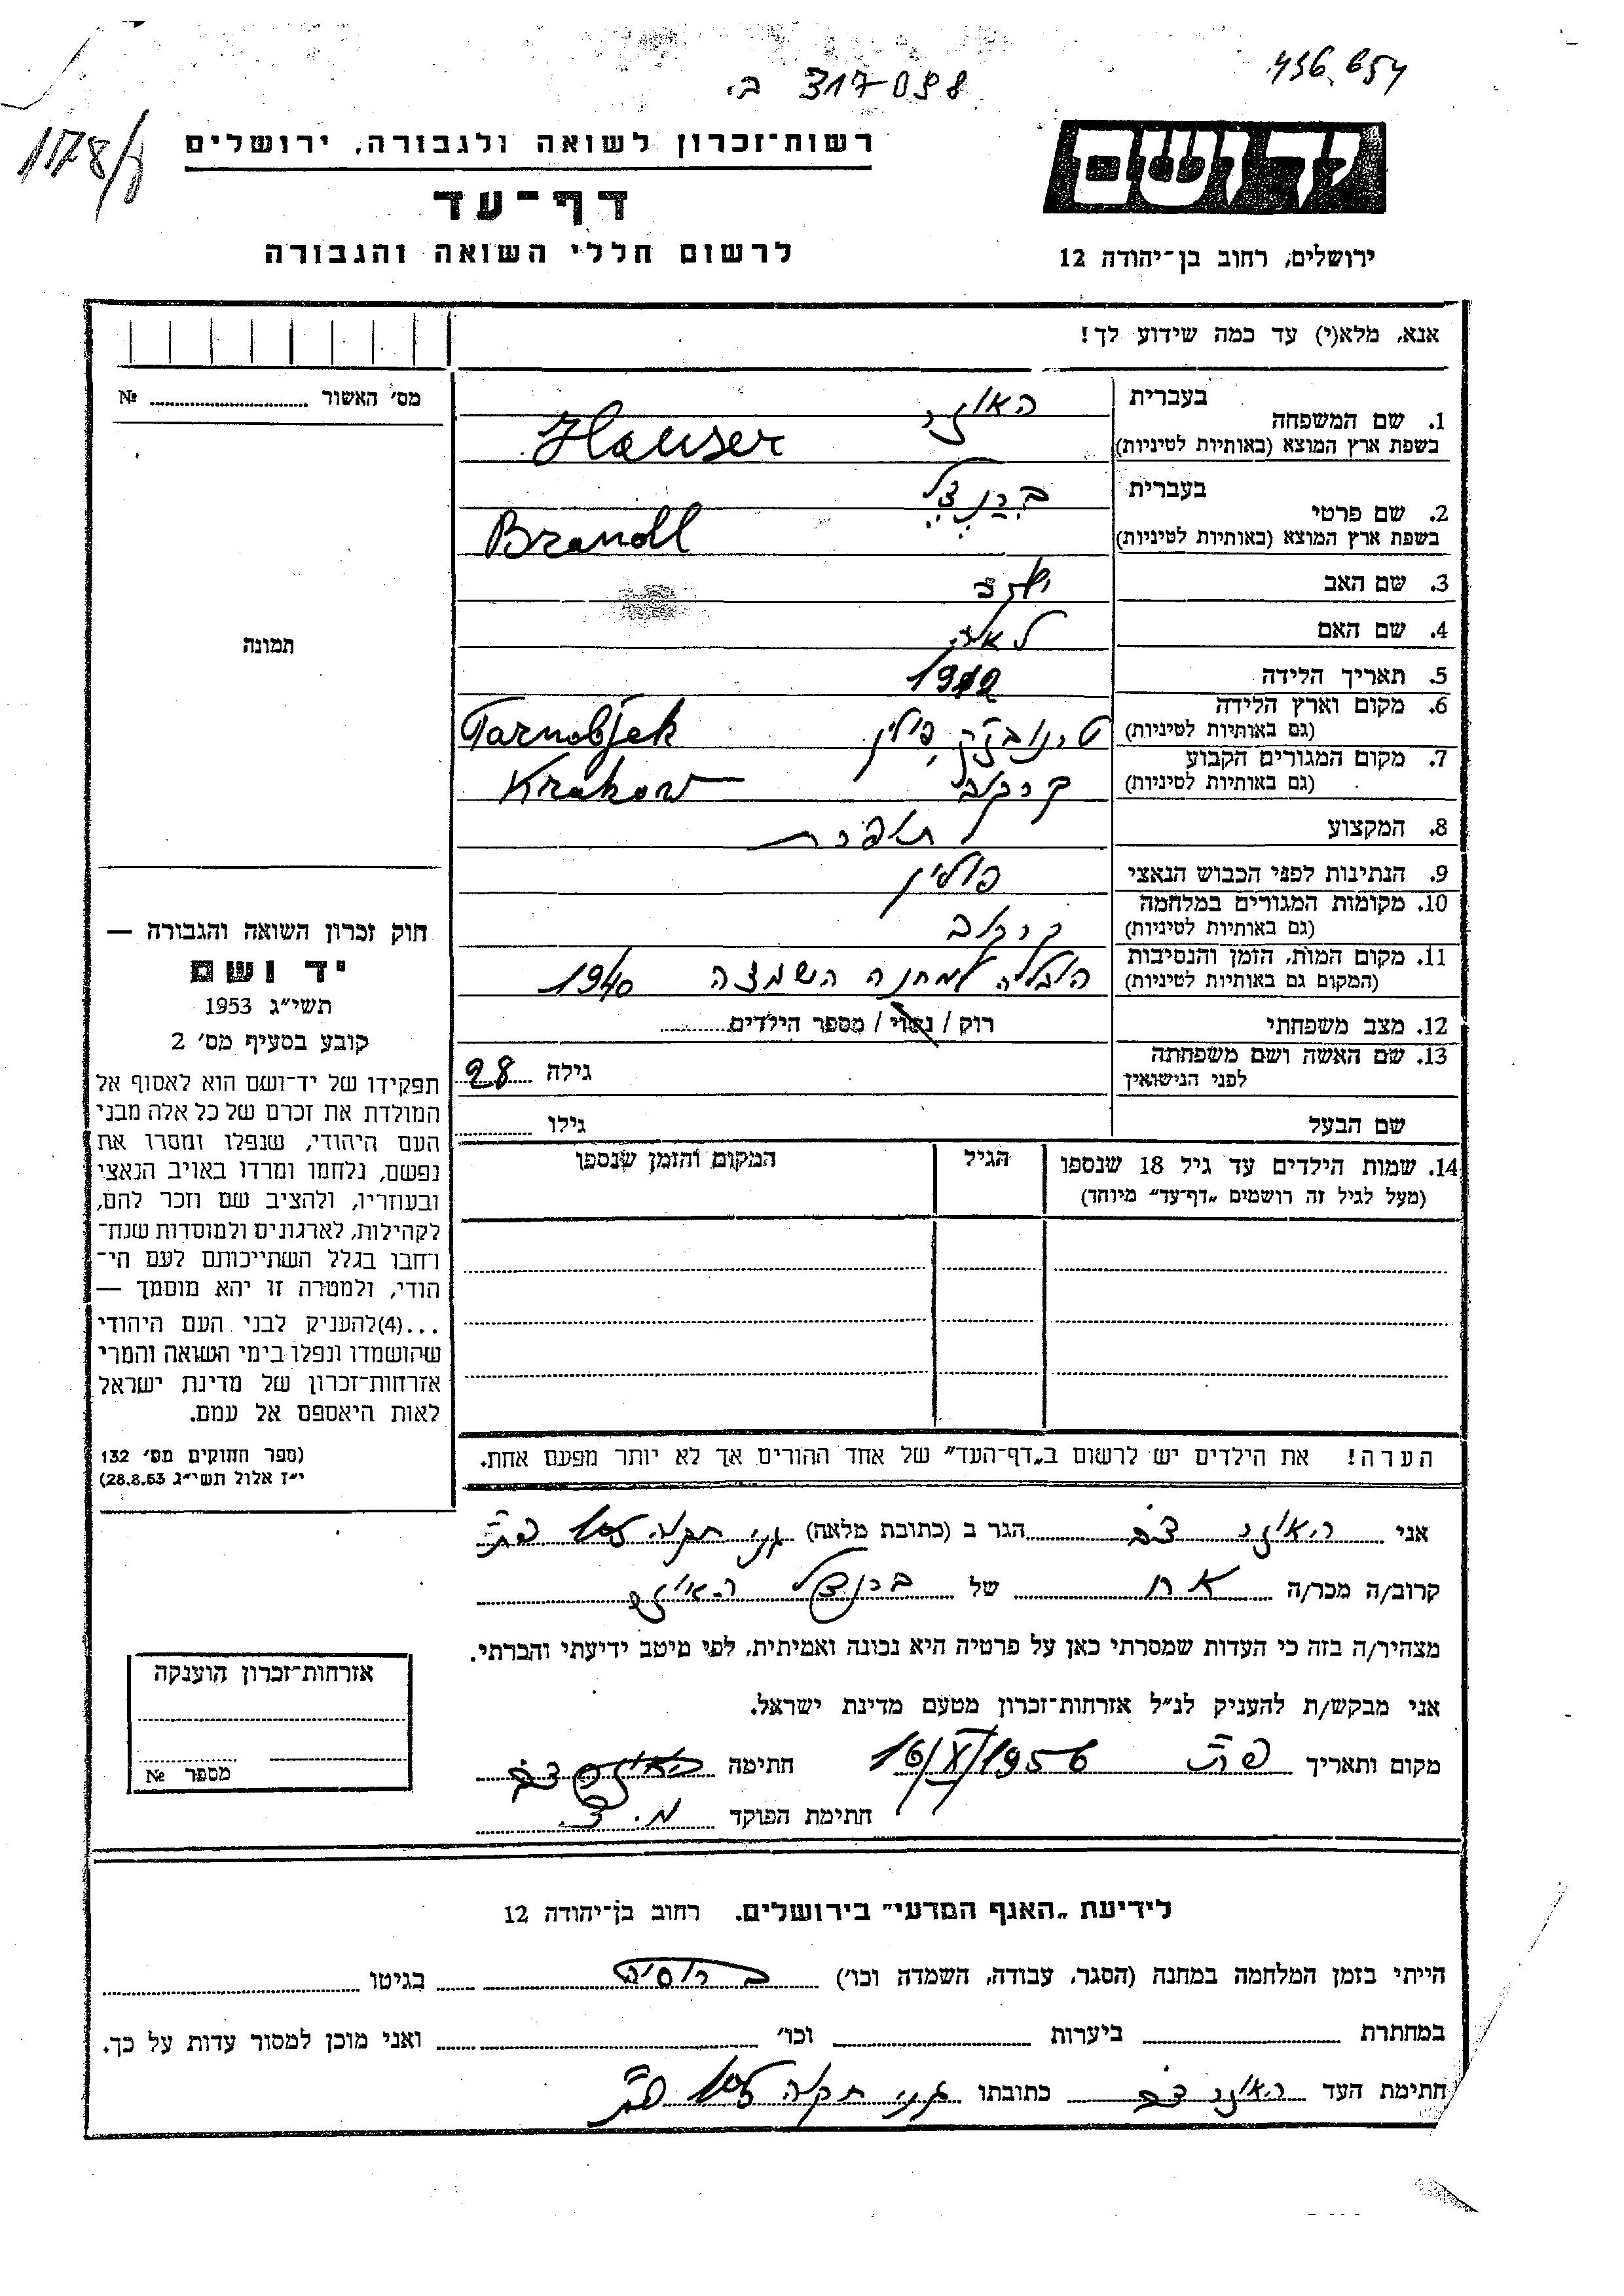 ב. 317098
436.654
178/
רשות־זכרון לשואה ולגבורה, ירושלים
דף־עד
לרשום חללי השואה והגבורה
יד ושם
ירושלים, רחוב בן־יהודה 12
אנא, מלא(י) עד כמה שידוע לך!
מס׳ האשור № 
תמונה
1. שם המשפחה בעברית האוזר
בשפת ארץ המוצא (באותיות לטיניות) Hauser
2. שם פרטי בעברית ברנדל
בשפת ארץ המוצא (באותיות לטיניות) Brandl
3. שם האב
4. שם האם לאה
5. תאריך הלידה 1912
6. מקום וארץ הלידה
(גם באותיות לטיניות) פולין Tarnobjek
7. מקום המגורים הקבוע
(גם באותיות לטיניות) קרקוב Krakow
8. המקצוע תופרת
9. הנתינות לפני הכבוש הנאצי פולין
10. מקומות המגורים במלחמה
(גם באותיות לטיניות) קרקוב
11. מקום המות, הזמן והנסיבות
(המקום גם באותיות לטיניות) הובלה למחנה השמדה 1940
12. מצב משפחתי רוק / נשוי / מספר הילדים
13. שם האשה ושם משפחתה
לפני הנישואין גילה 28
שם הבעל גילו
14. שמות הילדים עד גיל 18 שנספו הגיל המקום והזמן שנספו
(מעל לגיל זה רושמים „דף־עד״ מיוחד)
הערה! את הילדים יש לרשום ב„דף־העד״ של אחד ההורים אך לא יותר מפעם אחת.
חוק זכרון השואה והגבורה —
יד ושם
תשי״ג 1953
קובע בסעיף מס׳ 2
תפקידו של יד־ושם הוא לאסוף אל
המולדת את זכרם של כל אלה מבני
העם היהודי, שנפלו ומסרו את
נפשם, נלחמו ומרדו באויב הנאצי
ובעוזריו, ולהציב שם וזכר להם,
לקהילות, לארגונים ולמוסדות שנח־
רחבו בגלל השתייכותם לעם הי־
הודי, ולמטרה זו יהא מוסמך —
...(4)להעניק לבני העם היהודי
שהושמדו ונפלו בימי השואה והמרי
אזרחות־זכרון של מדינת ישראל
לאות היאספם אל עמם.
(ספר החוקים מס׳ 132
י״ז אלול תשי״ג 28.8.53)
אני האוזר הגר ב (כתובת מלאה) גני תקוה
קרוב/ה מכר/ה אח של ברנדל האוזר
מצהיר/ה בזה כי העדות שמסרתי כאן על פרטיה היא נכונה ואמיתית, לפי מיטב ידיעתי והכרתי.
אני מבקש/ת להעניק לנ״ל אזרחות־זכרון מטעם מדינת ישראל.
מקום ותאריך פ״ת 16/X/1956 חתימה האוזר
חתימת הפוקד
אזרחות־זכרון הוענקה
מספר №
לידיעת „האגף המדעי״ בירושלים. רחוב בן־יהודה 12
הייתי בזמן המלחמה במחנה (הסגר, עבודה, השמדה וכו׳) ברוסיה בגיטו
במחתרת ביערות וכו׳ ואני מוכן למסור עדות על כך.
חתימת העד האוזר כתובתו גני תקוה